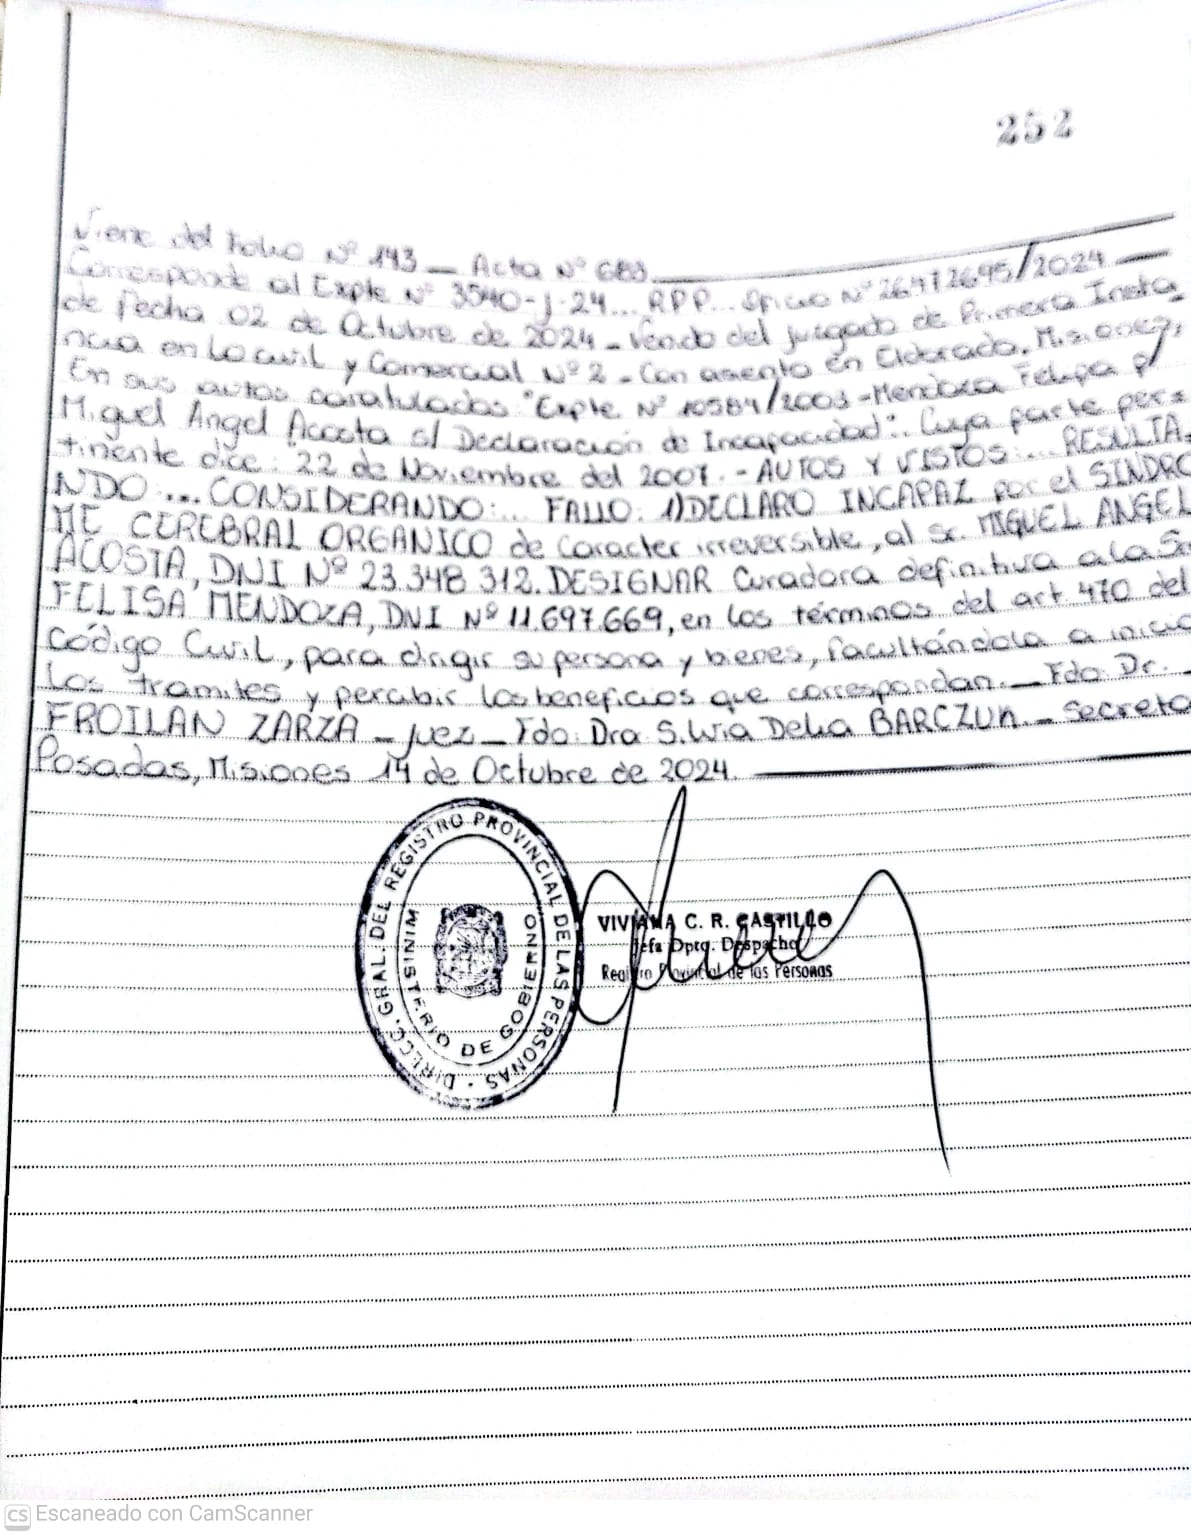 252
Viene del Folio Nº 143 _ Acta Nº 683
Corresponde al Expte Nº 3540-J-24... RPP... Oficio Nº /2024
de fecha 02 de Octubre de 2024 _ Venido del Juzgado de Primera Insta_
ncia en Lo civil y Comercial Nº 2 _ Con asiento en Eldorado, Misiones,
En sus autos caratulados "Expte Nº 10584/2003 - Mendoza Felipa p/
Miguel Angel Acosta s/ Declaración de Incapacidad". Cuya parte per=
tinente dice: 22 de Noviembre del 2007. - AUTOS Y VISTOS:... RESULTA_
NDO:... CONSIDERANDO:... FALLO: 1) DECLARO INCAPAZ por el SINDRO
ME CEREBRAL ORGANICO de Caracter irreversible, al Sr. MIGUEL ANGEL
ACOSTA, DNI Nº 23.348.312. DESIGNAR Curadora definitiva a La S
FELISA MENDOZA, DNI Nº 11.697.669, en los términos del art. 470 del
Código Civil, para dirigir su persona y bienes, facultándola a inicia
los tramites y percibir los beneficios que correspondan. _ Fdo. Dr.
FROILAN ZARZA _ Juez _ Fdo: Dra Silvia Delia BARCZUN. _ Secreta
Posadas, Misiones 14 de Octubre de 2024.
DIRECC. GRAL. DEL REGISTRO PROVINCIAL DE LAS PERSONAS ·
MINISTERIO DE GOBIERNO
VIVIANA C. R. CASTILLO
Jefa Dpto. Despacho
Registro Provincial de las Personas
CS Escaneado con CamScanner